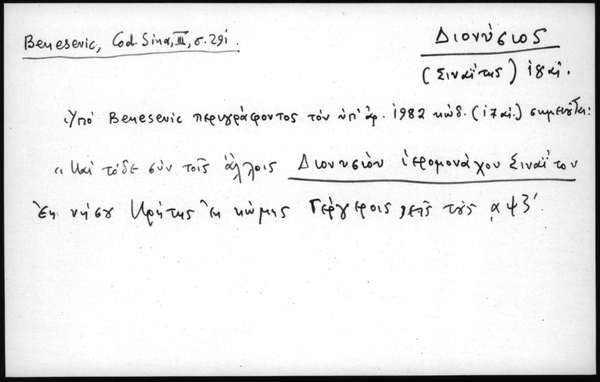 Benesevic, Cod. Sina, III, σ. 291.
Διονύσιος
(Σιναΐτης) ιη αἰ.
Ὑπό Benesevic περιγράφοντος τόν ὑπ' ἀρ. 1982 κώδ. (17 αἰ.) σημειοῦται:
"Καί τόδε σύν τοῖς ἄλλοις Διονυσίου ἱερομονάχου Σιναΐτου
ἐκ νήσου Κρήτης ἐκ κώμης Γέργερις τούς ͵αψξ'.